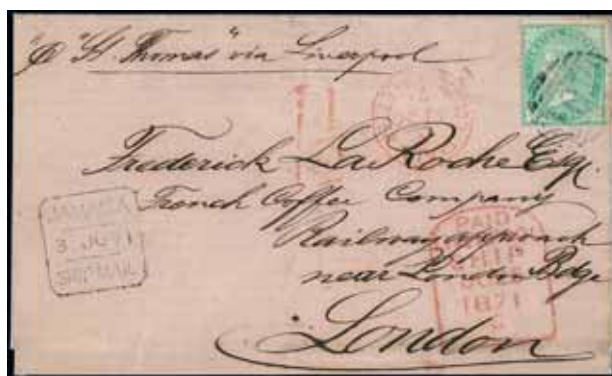 "p "St. Thomas" via Liverpool
Frederick La Roche Esqr.
French Coffee Company
Railway approach
near London Bdge
London
JAMAICA
3 JU 71
SHIP MAIL
PAID
SHIP
1871